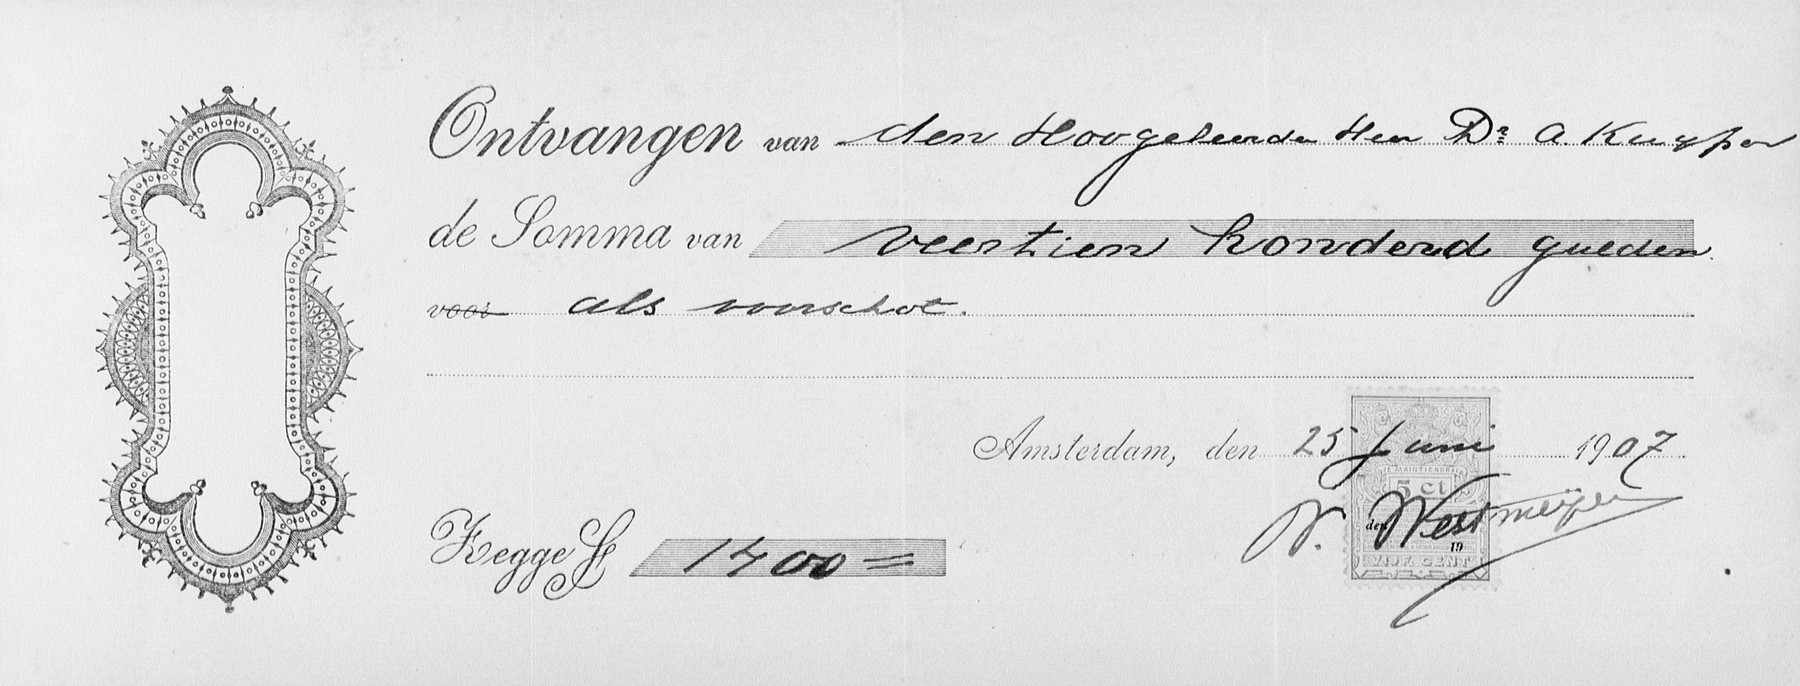 Ontvangen van den Hoogeleerden Heer Dr. A. Kuyper
de Somma van veertien honderd gulden.
voor als voorschot.
Amsterdam, den 25 Juni 1907.
JE MAINTIENDRAI
5 ct
W. Westmeijer
den
19
VIJF CENT
Zegge ƒ 1400=